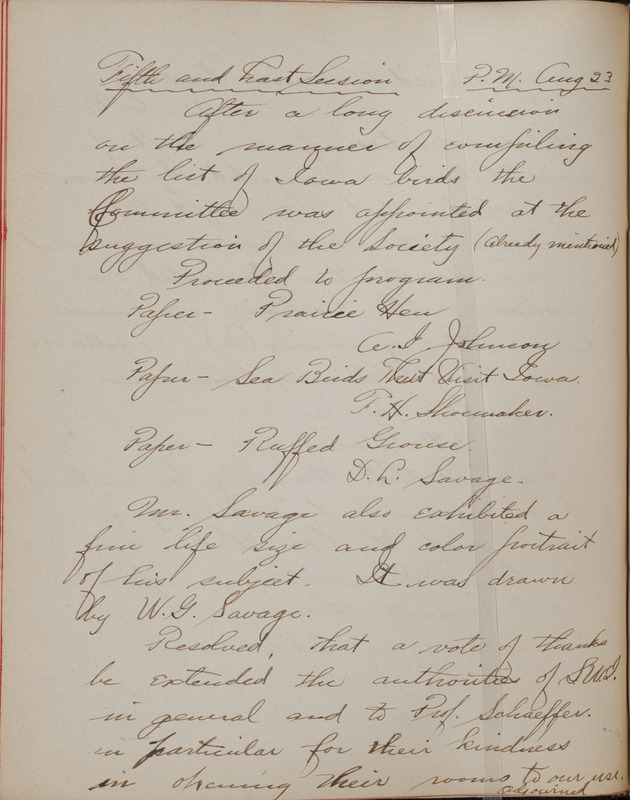 Fifth and Last Session P.M. Aug 23
After a long discussion
on the manner of compiling
the list of Iowa birds the
Committee was appointed at the
suggestion of the Society (already mentioned)
Proceeded to program.
Paper - Prairie Hen
A. I. Johnson
Paper - Sea Birds That Visit Iowa.
F. H. Shoemaker.
Paper - Ruffed Grouse
D. L. Savage.
Mr. Savage also exhibited a
fine life size and color portrait
of his subject. It was drawn
by W. G. Savage.
Resolved, that a vote of thanks
be extended the authorities of S.U.I.
in general and to Prof. Schaeffer.
in particular for their kindness
in opening their rooms to our use.
adjourned